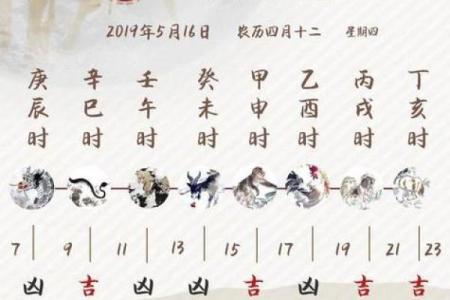 2019年5月16日 农历四月十二 星期四
庚辰时 辛巳时 壬午时 癸未时 甲申时 乙酉时 丙戌时 丁亥时
7 9 11 13 15 17 19 21 23
凶 吉 凶 凶 吉 凶 吉 吉